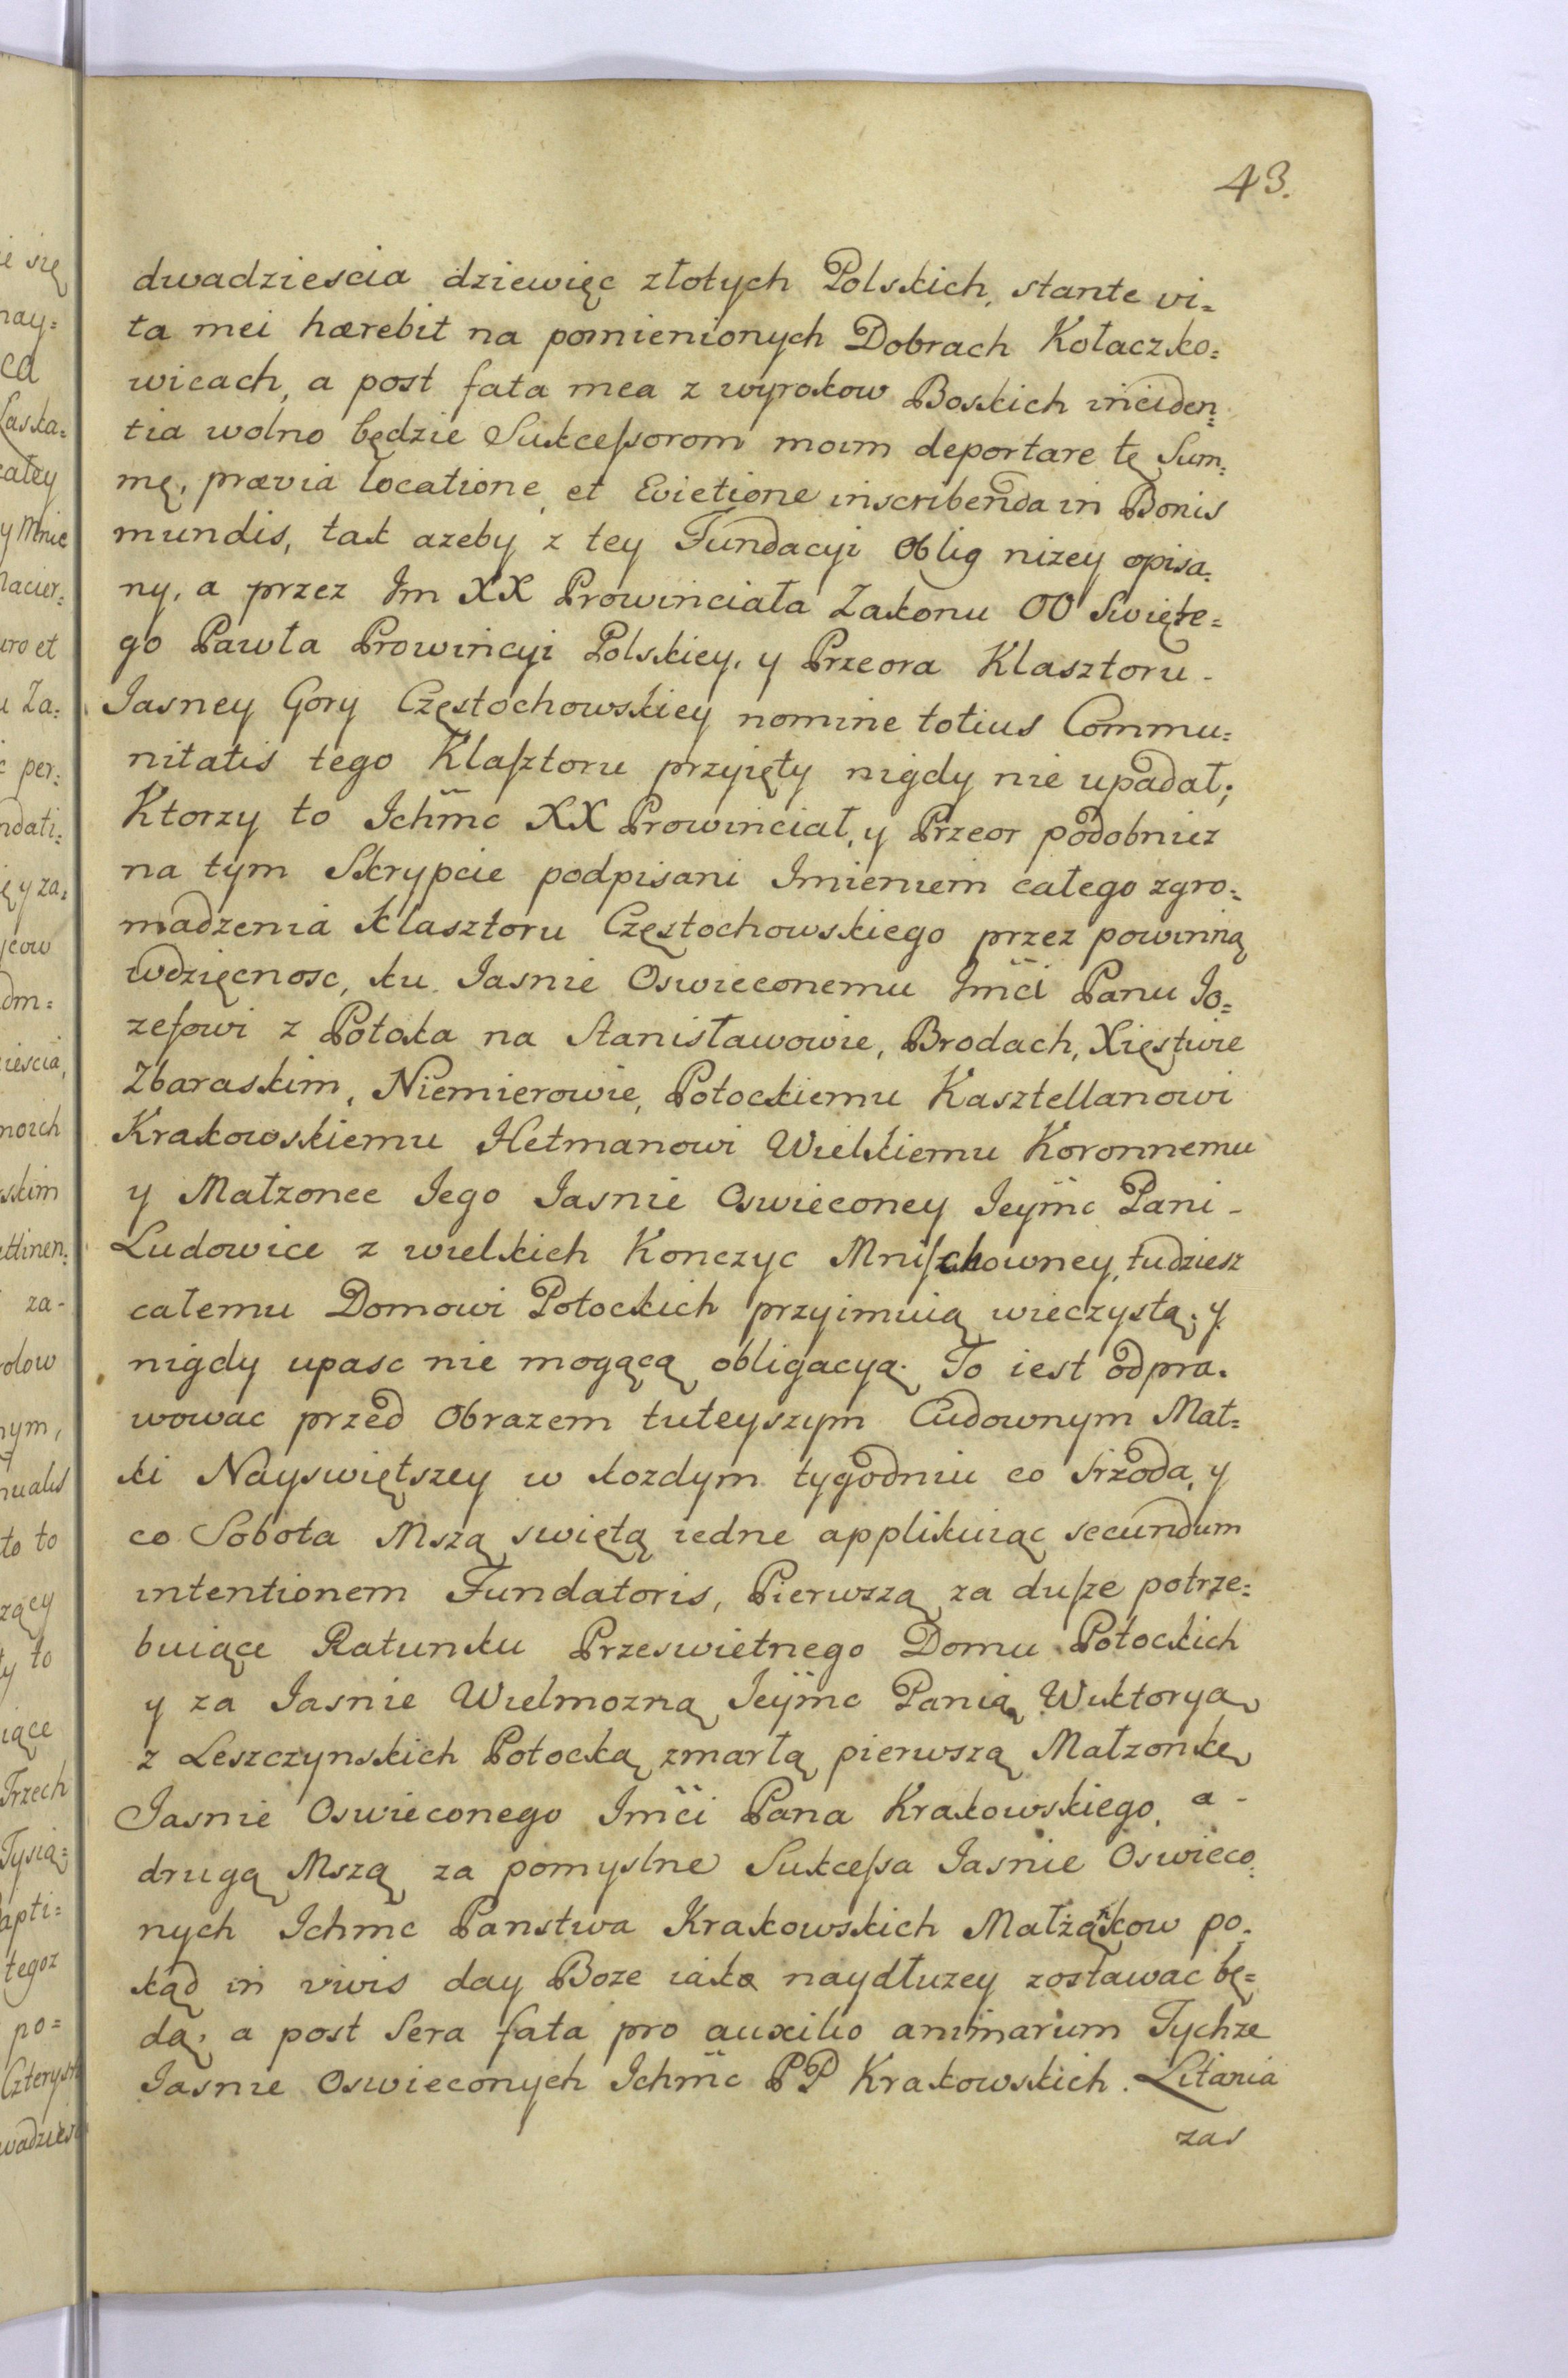 43.
dwadziescia dziewięc złotych Polskich, stante vi=
ta mei hærebit na pomienionych Dobrach Kołaczko=
wicach, a post fata mea z wyrokow Boskich inciden=
tia wolno będzie Sukceſsorom moim deportare tę Sum=
mę, prævia locatione, et Evictione inscribenda in Bonis
mundis, tak azeby z tey Fundacyi Oblig nizey opisa=
ny, a przez Im XX Prowinciała Zakonu OO Swięte=
go Pawła Prowincyi Polskiey, y Przeora Klasztoru -
Jasney Gory Częstochowskiey nomine totius Commu=
nitatis tego Klaſztoru przyięty nigdy nie upadał;
Ktorzy to Ichm̃c XX Prowinciał, y Przeor podobniez
na tym Skrypcie podpisani Imieniem całego zgro=
madzenia Klasztoru Częstochowskiego przez powinną
wdzięcnosc, ku Jasnie Oswieconemu Jm̃ci Panu Jo=
zefowi z Potoka na Stanisławowie, Brodach, Xięstwie
Zbaraskim, Niemierowie, Potockiemu Kasztellanowi
Krakowskiemu Hetmanowi Wielkiemu Koronnemu
y Małzonce Jego Jasnie Oswieconey Jeym̃c Pani -
Ludowice z wielkich Konczyc Mniſzchowney, tudziesz
całemu Domowi Potockich przyimuią wieczystą, y
nigdy upasc nie mogącą obligacyą. To iest odpra=
wowac przed Obrazem tuteyszym Cudownym Mat=
ki Nayswiętszey w kozdym tygodniu co Srzoda, y
co Sobota Mszą swiętą iedne applikuiąc secundum
intentionem Fundatoris, Pierwszą za duſze potrze=
buiące Ratunku Przeswietnego Domu Potockich
y za Jasnie Wielmozną Jeym̃c Panią Wiktoryą
z Leszczynskich Potocką zmarłą pierwszą Małzonkę
Jasnie Oswieconego Jm̃ci Pana Krakowskiego, a -
drugą Mszą za pomyslne Sukceſsa Jasnie Oswieco=
nych Ichmc Panstwa Krakowskich Małżąkow po=
kąd in vivis day Boze iako naydłuzey zostawac bę=
dą, a post sera fata pro auxilio animarum Tychze
Jasnie Oswieconych Ichm̃c PP Krakowskich. Litania
zas